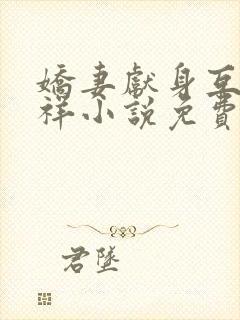 嬌妻獻身互
祥小說免費
君墜